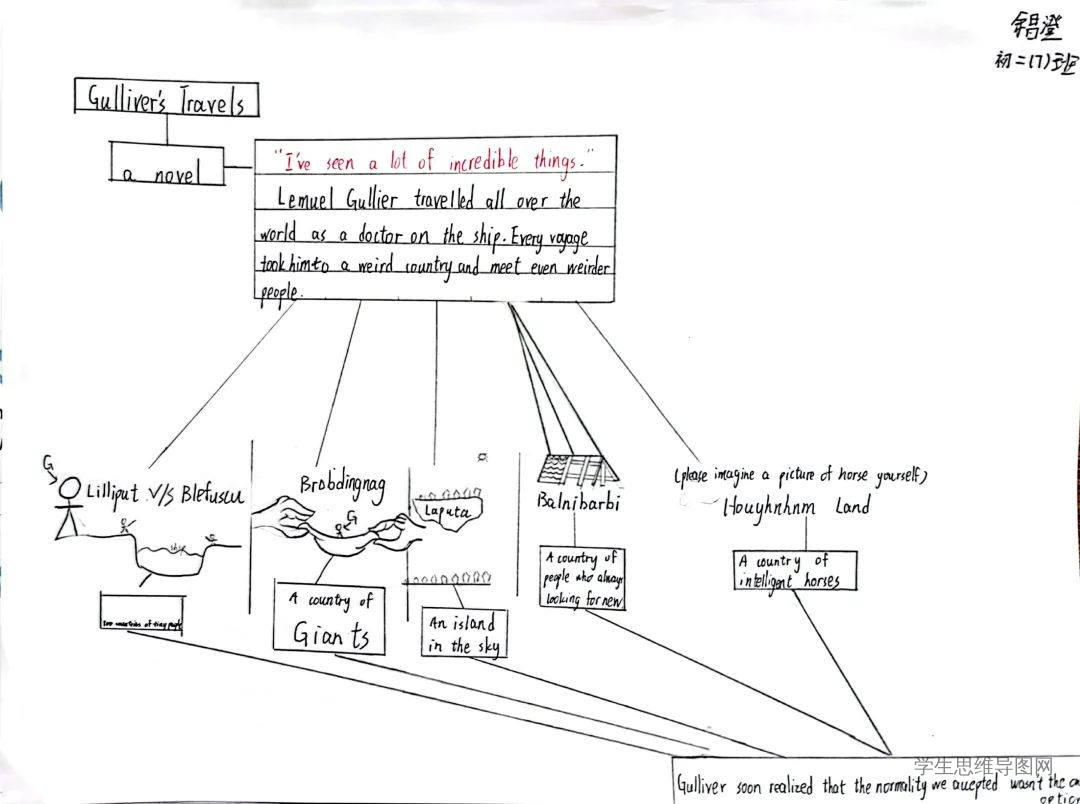 初二(7)班
Gulliver's Travels
a novel
"I've seen a lot of incredible things."
Lemuel Gullier travelled all over the
world as a doctor on the ship. Every voyage
took him to a weird country and meet even weirder
people.
G
Lilliput V/S Blefuscu
ship
two countries of tiny people
Brobdingnag
G
A country of
Giants
Laputa
An island
in the sky
Balnibarbi
A country of
people who always
looking for new
(please imagine a picture of horse yourself)
Houyhnhnm Land
A country of
intelligent horses
学生思维导图网
Gulliver soon realized that the normality we accepted wasn't the
option